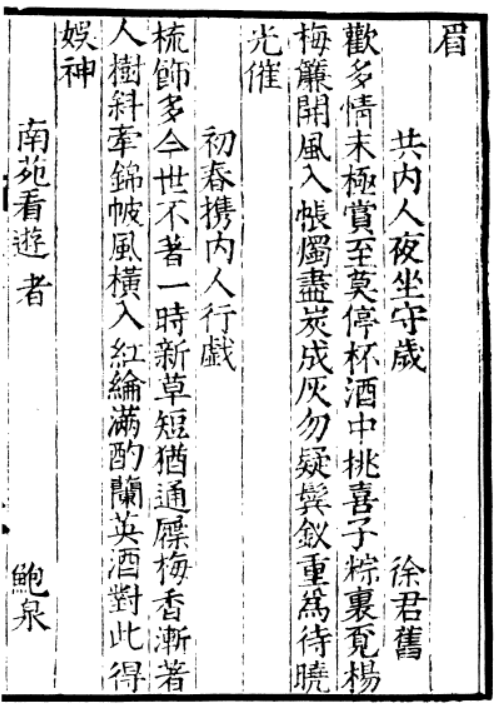 眉
共内人夜坐守歲 徐君舊
歡多情未極賞至莫停杯酒中挑喜子粽裏覓楊
梅簾開風入帳燭盡炭成灰勿疑鬂釵重為待曉
光催
初春携内人行戯
梳飾多今世不著一時新草短猶通屧梅香漸著
人樹斜牽錦帔風横入紅綸滿酌蘭英酒對此得
娱神
南苑看遊者 鮑泉